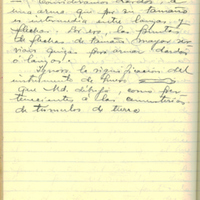 Consideran dardos a
una arma que por su tamaño
es intermedia entre lanzas y
flechas. Por eso, las puntas
de flechas de tamaño mayor ser-
vían quizás para armar dardos
o lanzas.
Ignoro la significación del
instrumento de hueso
que Ud. dibujó, como per-
teneciente a los cementerios
de túmulos de tierra